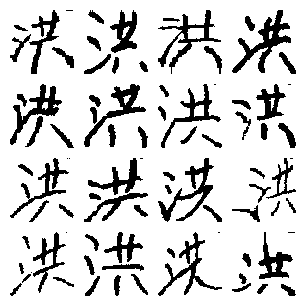 洪洪洪洪
洪洪洪洪
洪洪洪洪
洪洪洪洪